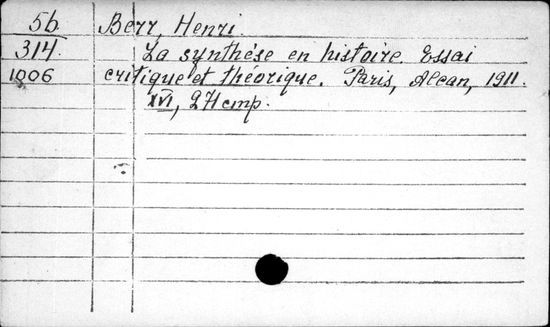 56 Berr, Henri.
314. La synthése en histoire. Essai
1006 critique et théorique. Paris, Alcan, 1911.
XVI, 271 стр.